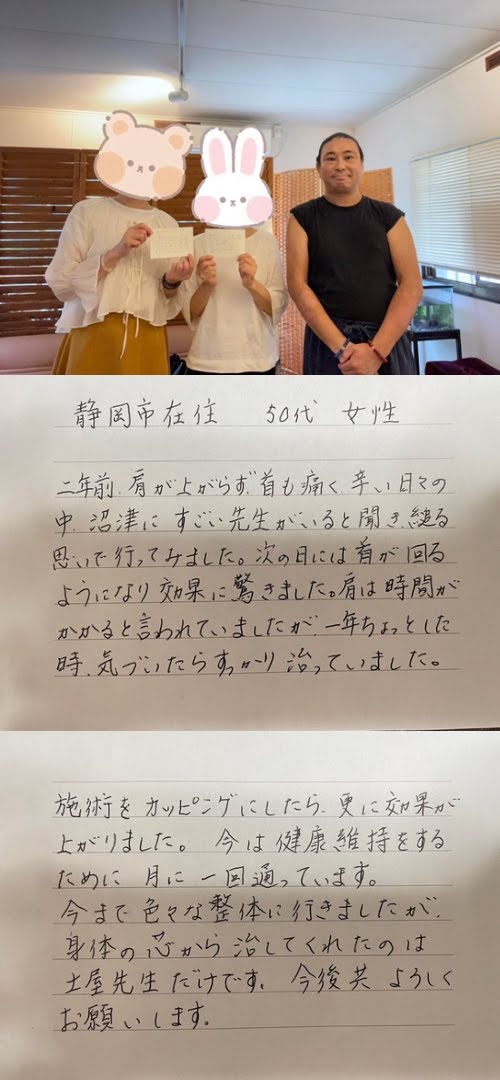 静岡市在住 50代 女性
二年前、肩が上がらず、首も痛く、辛い日々の
中、沼津に すごい先生がいると聞き、縋る
思いで行ってみました。次の日には首が回る
ようになり 効果に驚きました。肩は時間が
かかると言われていましたが、一年ちょっとした
時、気づいたらすっかり治っていました。
施術をカッピングにしたら、更に効果が
上がりました。 今は健康維持をする
ために 月に 一回通っています。
今まで色々な整体に行きましたが、
身体の芯から治してくれたのは
土屋先生だけです。 今後共 よろしく
お願いします。